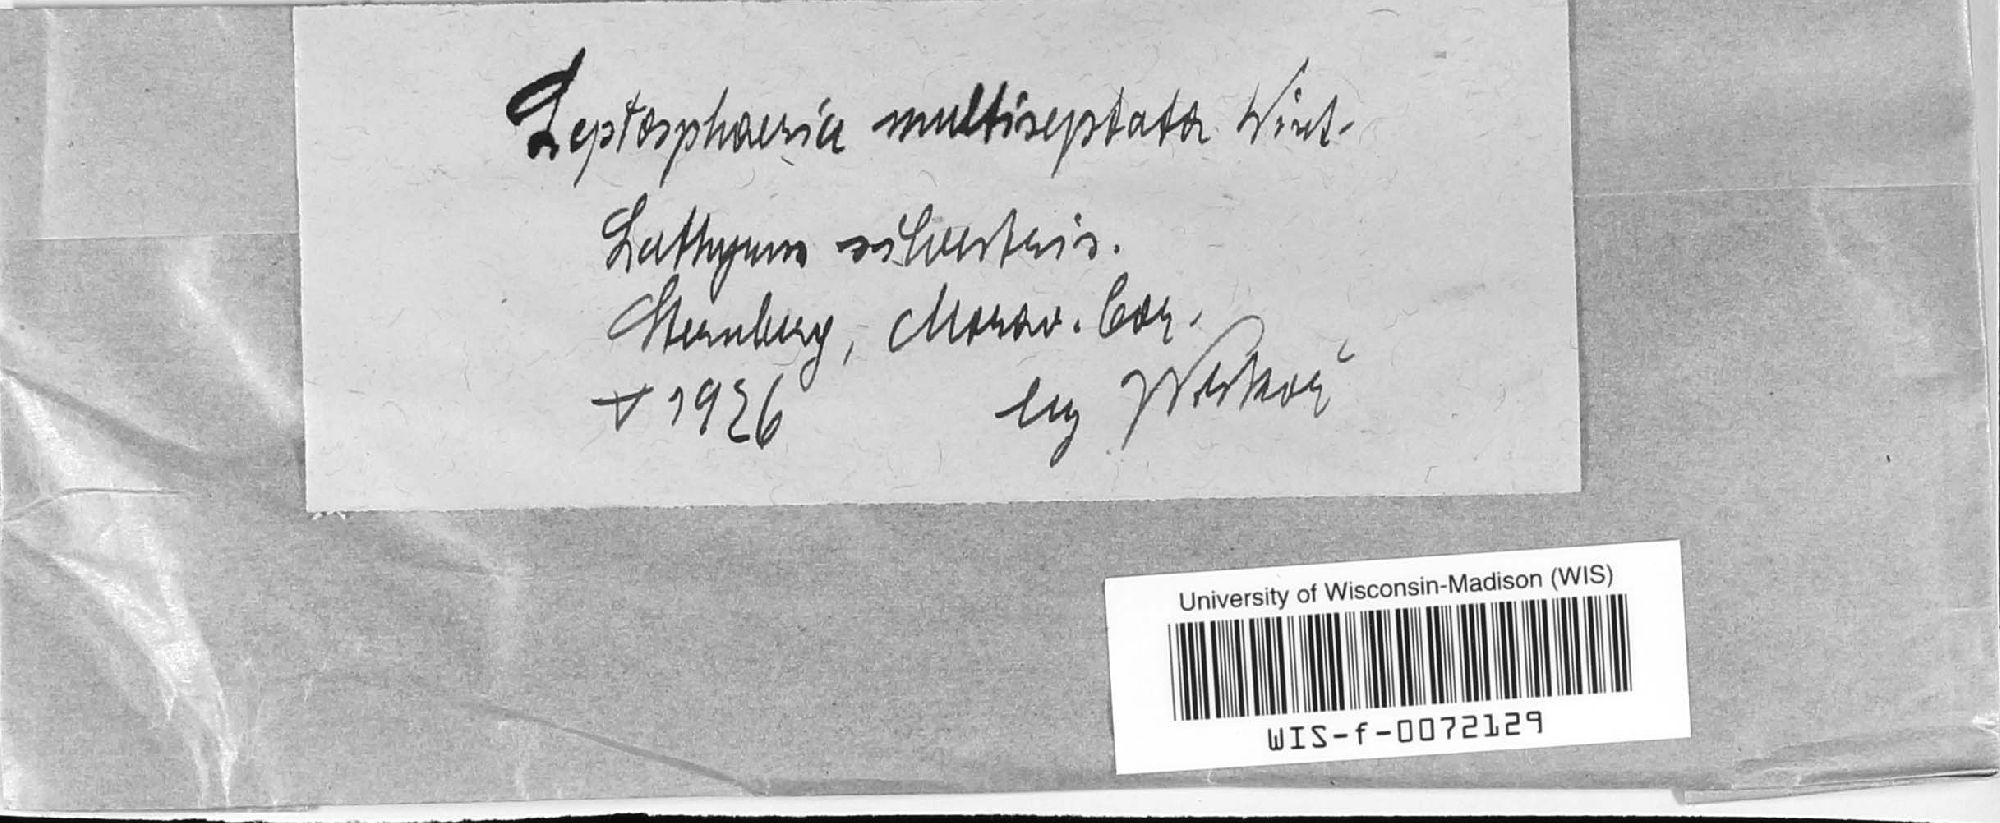 Leptosphaeria multiseptata Wint.
Lathyrus silvestris.
Sternberg, Morav. Cor.
V 1926 leg
University of Wisconsin-Madison (WIS)
WIS-f-0072129